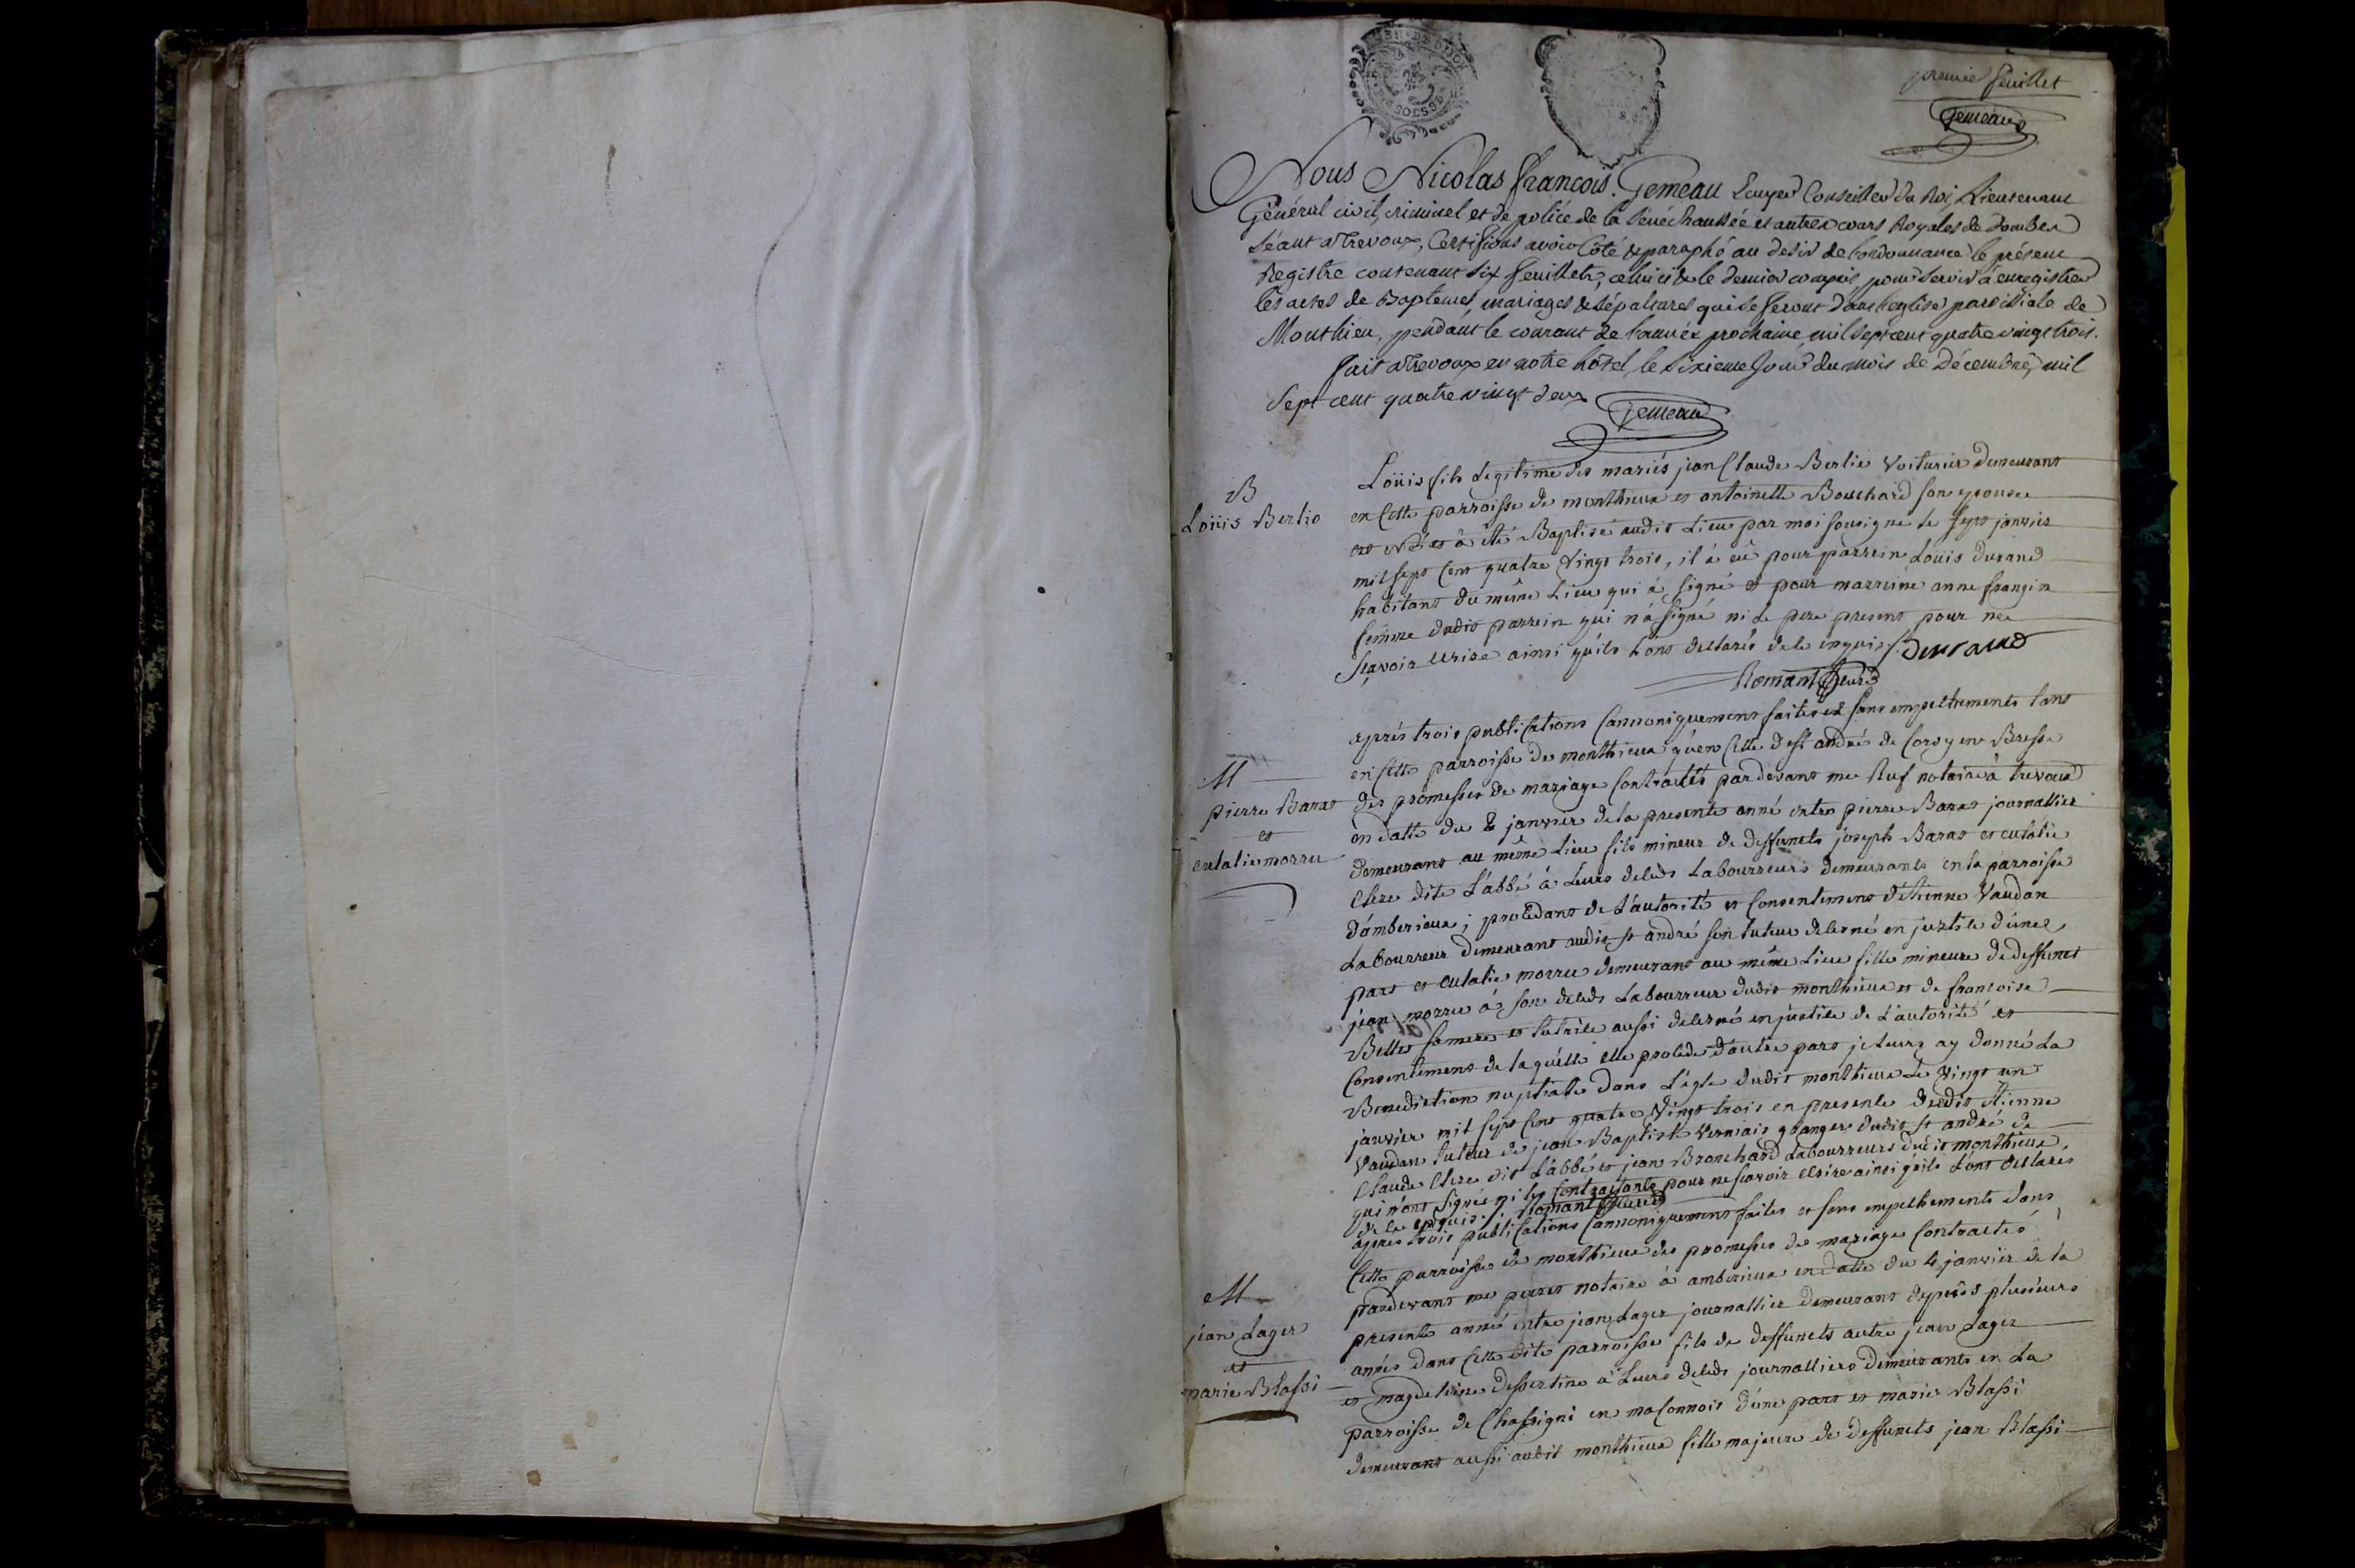 premier feuillet
Gemeau
Nous Nicolas françois Gemeau Ecuyer Conseiller du Roi, Lieutenant
Général civil, criminel et de police de la Sénéchaussée et autres cours Royales de Dombes
séant a Trevoux, Certifions avoir Coté & paraphé au desir de l'ordonnance le présent
Registre contenant six feuillets, celui ci & le dernier compris, pour servir à enregistrer
les actes de Baptemes, mariages & sépultures qui se feront dans l'eglise paroissiale de
Monthieu, pendant le courant de l'année prochaine, mil sept cent quatre vingt trois.
fait a Trevoux en notre hôtel, le sixieme jour du mois de Décembre, mil
sept cent quatre vingt deux Gemeau
B
Loüis Berlio
Loüis fils Legitime des mariés jean Claude Berlie Voiturier demeurant
en Cette parroisse de monthieux et antoinette Bouchard son epouse
est Né et à été Baptisé audit Lieu par moi sousigné le sept janvier
mil sept Cent quatre Vingt trois, il à eû pour parrein Loüis durand
habitant du même Lieu qui à signé et pour marreine anne frangin
femme dudit parrein qui n'à signé ni Le pere present pour ne
sçavoir Ecrire ainsi qu'ils L'ont declaré de ce enquis ./. Durand
Romant Curé
M
pierre Baras
et
eulalie morru
après trois publications Cannoniquement faites et sans empechements tant
en Cette parroisse de monthieux qu'en Celle de st andré de Corcy en Bresse
des promesses de mariage Contractés pardevant me Ruf notaire à trevoux
en datte du 2 janvier de la presente anné entre pierre Baras journallier
demeurant au même Lieu fils mineur de deffuncts joseph Baras et eulalie
Clere dite L'abbé à Leurs deceds Labourreurs demeurants en la parroisse
d'amberieux ; procedant de L'autorité et Consentement d'étienne Vaudan
Labourreur demeurant audit st andré son tuteur decerné en justice d'une
part et eulalie morru demeurant au même Lieu fille mineure de deffunct
jean morru à son deceds Labourreur dudit monthieux et de francoise
Belle sa mere et tutrice aussi decerné en justice de L'autorité et
Consentement de laquelle elle procede d'autre part je Leurs ay donné La
Benediction nuptiale dans L'egle dudit monthieux Le Vingt un
janvier mil sept Cent quatre Vingt trois en presence dudit étienne
Vaudan tuteur de jean Baptiste Verniais granger dudit st andré de
Claude Clere dit L'abbé et jean Bronchard Labourreurs dudit monthieux
qui n'ont signé ni les Contractants pour ne sçavoir ecrire ainsi qu'ils L'ont declarés
de ce enquis ./. Romant Curé
M
jean Lager
et
marie Blassi
après trois publications Cannoniquement faites et sans empechements dans
Cette parroisse de monthieux des promesses de mariage Contractés
pardevant me notaire à amberieux en datte du 4 janvier de la
presente anné entre jean Lager journallier demeurant depuis plusieurs
années dans Cette dite parroisse fils de deffuncts autre jean Lager
et magdeleine dessertine à Leurs deceds journalliers demeurants en La
parroisse de Chassigni en maconnois d'une part et marie Blassi
demeurant aussi audit monthieux fille majeure de deffuncts jean Blassi